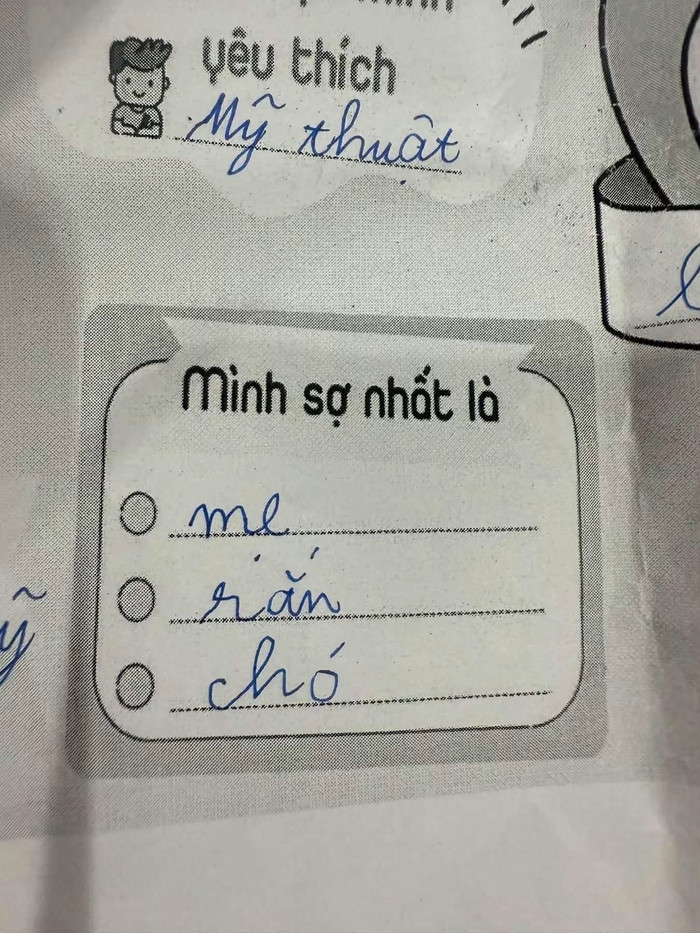 yêu thích
Mỹ thuật
Mình sợ nhất là
mẹ
rắn
chó